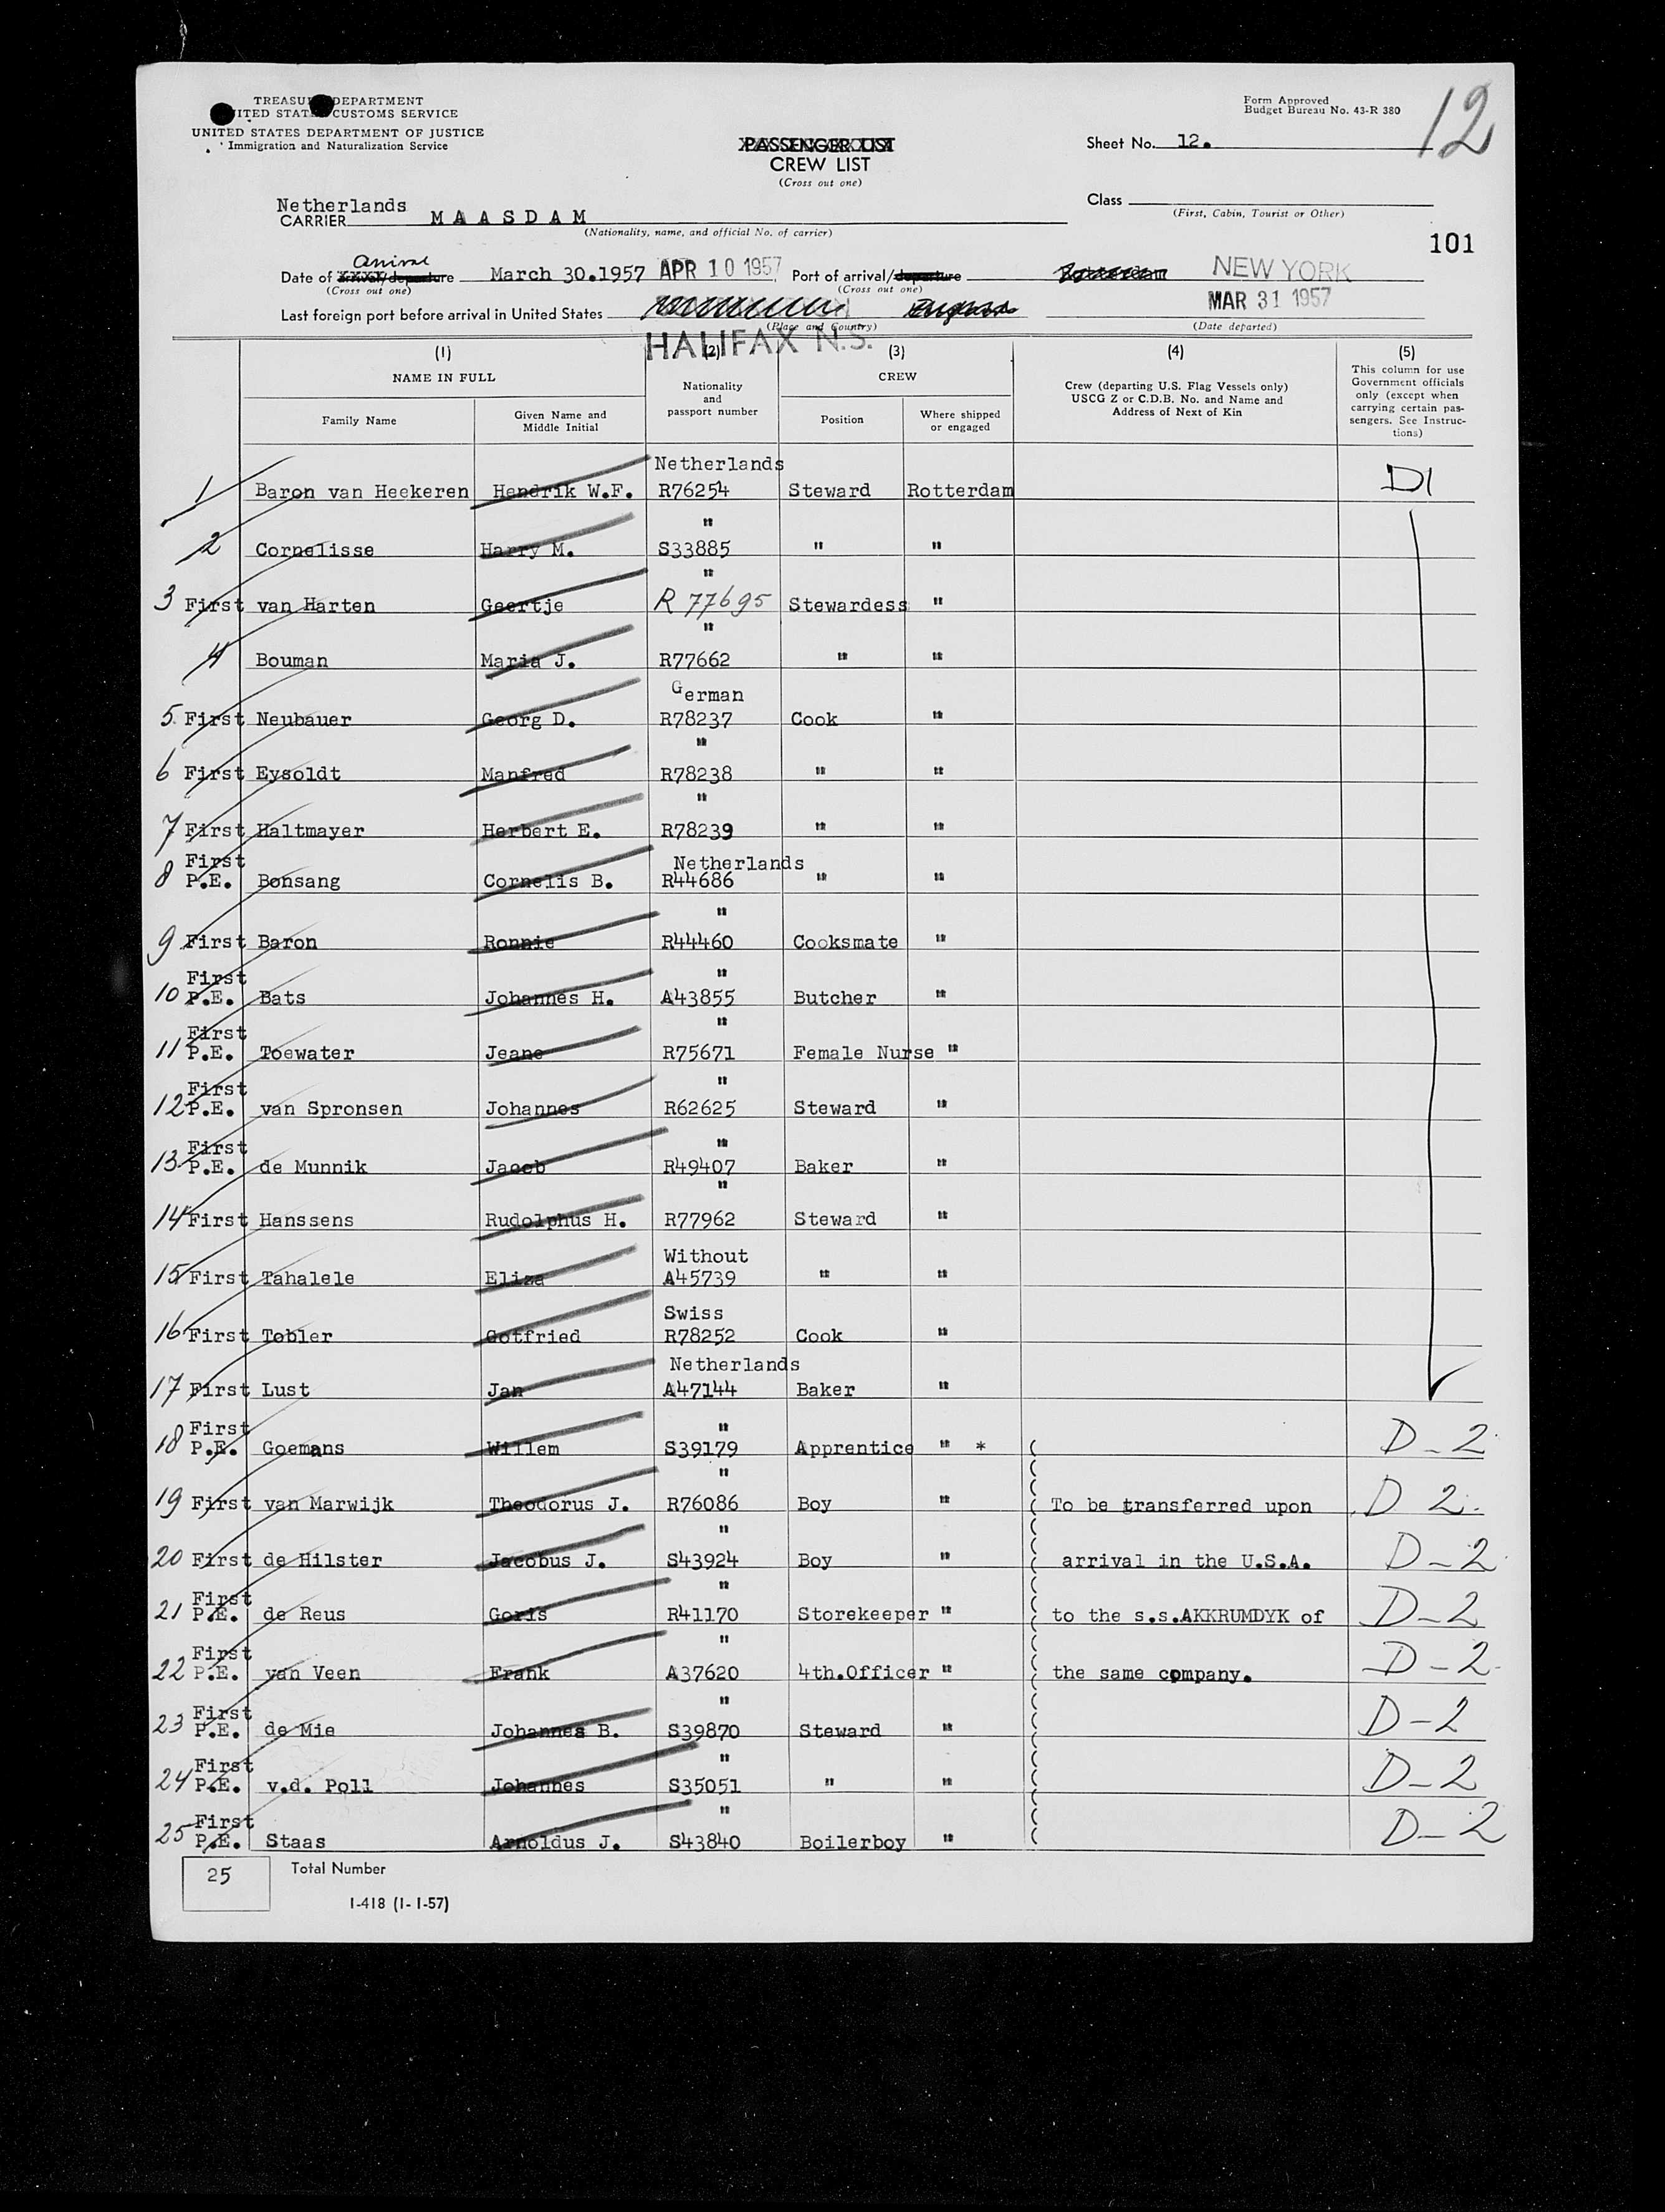 TREASU DEPARTMENT
ITED STAT CUSTOMS SERVICE
UNITED STATES DEPARTMENT OF JUSTICE
Immigration and Naturalization Service
Form Approved
Budget Bureau No. 43-R 380
12
PASSENGER LIST
CREW LIST
(Cross out one)
Sheet No. 12.
Netherlands
CARRIER MAASDAM
(Nationality, name, and official No. of carrier)
Class
(First, Cabin, Tourist or Other)
101
Arrival
Date of arrival/departure March 30.1957 APR 10 1957 Port of arrival/departure Rotterdam NEW YORK
(Cross out one) (Cross out one)
Last foreign port before arrival in United States England MAR 31 1957
(Place and Country) (Date departed)
HALIFAX N.S.
(1) (2) (3) (4) (5)
NAME IN FULL
Family Name
Given Name and Middle Initial
Nationality and passport number
CREW
Position
Where shipped or engaged
Crew (departing U.S. Flag Vessels only)
USCG Z or C.D.B. No. and Name and
Address of Next of Kin
This column for use
Government officials
only (except when
carrying certain pas-
sengers. See Instruc-
tions)
Netherlands
1 Baron van Heekeren Hendrik W.F. R76254 Steward Rotterdam D1
"
2 Cornelisse Harry M. S33885 " "
"
3 First van Harten Geertje R 77695 Stewardess "
"
4 Bouman Maria J. R77662 " "
German
5 First Neubauer Georg D. R78237 Cook "
"
6 First Eysoldt Manfred R78238 " "
"
7 First Haltmayer Herbert E. R78239 " "
First Netherlands
8 P.E. Bonsang Cornelis B. R44686 " "
"
9 First Baron Ronnie R44460 Cooksmate "
First "
10 P.E. Bats Johannes H. A43855 Butcher "
First "
11 P.E. Toewater Jeane R75671 Female Nurse "
First "
12 P.E. van Spronsen Johannes R62625 Steward "
First "
13 P.E. de Munnik Jacob R49407 Baker "
"
14 First Hanssens Rudolphus H. R77962 Steward "
Without
15 First Tahalele Eliza A45739 " "
Swiss
16 First Tobler Gotfried R78252 Cook "
Netherlands
17 First Lust Jan A47144 Baker "
First "
18 P.E. Goemans Willem S39179 Apprentice " * ( D-2
"
19 First van Marwijk Theodorus J. R76086 Boy " ( To be transferred upon D 2.
"
20 First de Hilster Jacobus J. S43924 Boy " ( arrival in the U.S.A. D-2
First "
21 P.E. de Reus Goris R41170 Storekeeper " ( to the s.s.AKKRUMDYK of D-2
First "
22 P.E. van Veen Frank A37620 4th.Officer " ( the same company. D-2
First "
23 P.E. de Mie Johannes B. S39870 Steward " ( D-2
First "
24 P.E. v.d. Poll Johannes S35051 " " ( D-2
First "
25 P.E. Staas Arnoldus J. S43840 Boilerboy " ( D-2
25 Total Number
I-418 (1-1-57)